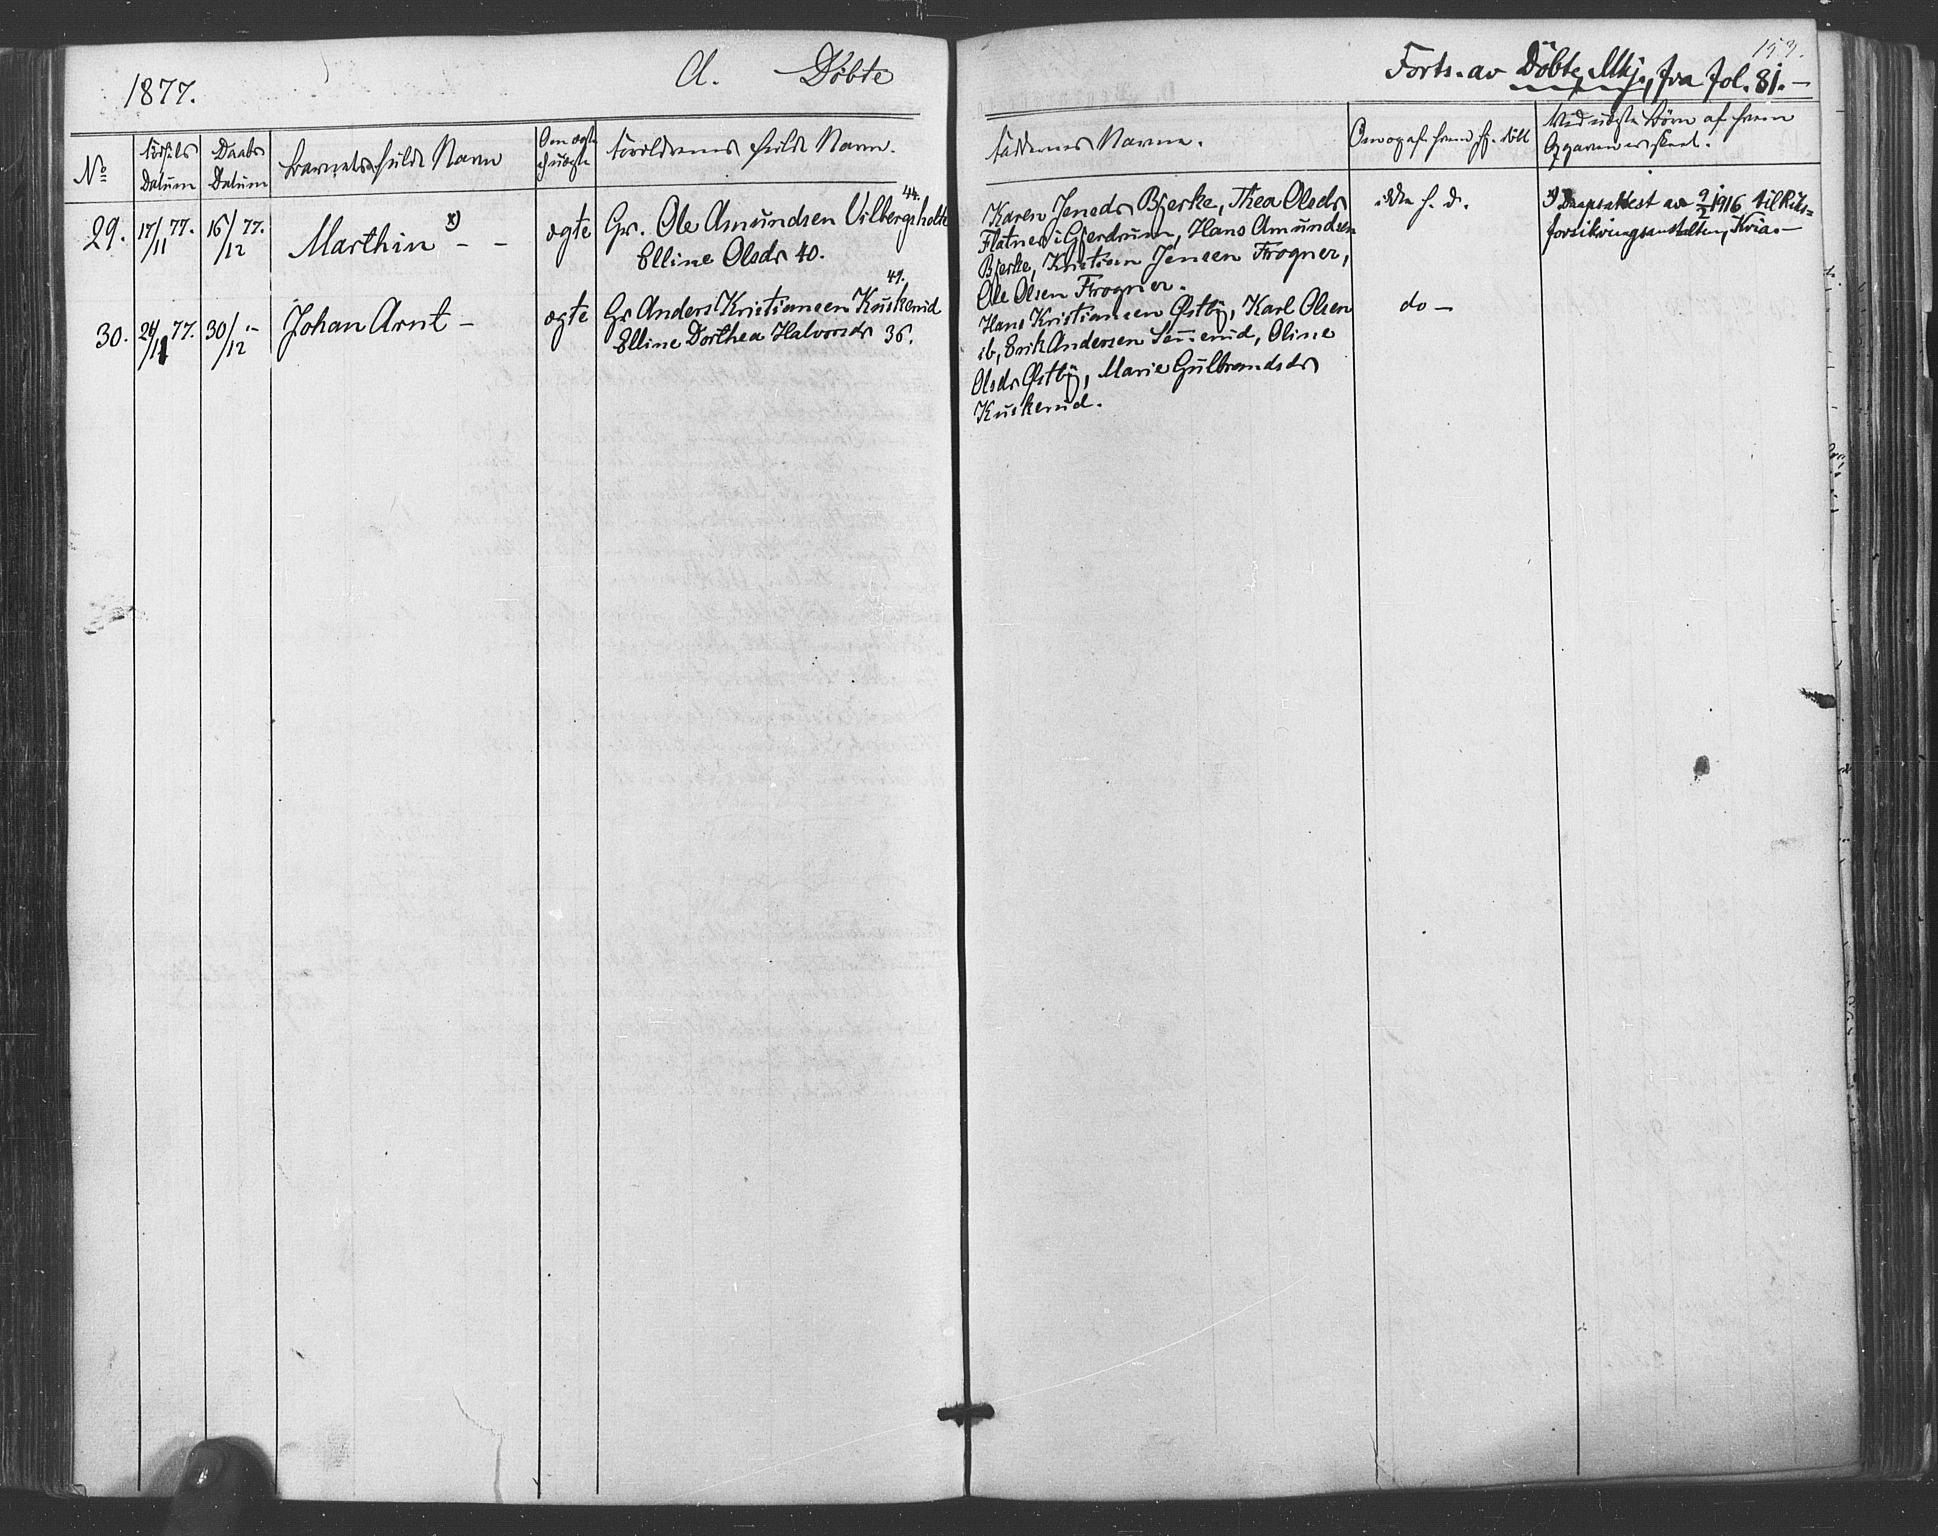 1877.
A. Döbte
Forts. av Döbte, Mkj., fra fol. 81. –
153.
No
Fødsels Datum
Daabs Datum
Barnets fulde Navn
Om ægte ell. uægte
Forældrenes fulde Navn.
Faddernes Navne.
Om opgaf. frem
Med uægte Børn af hvem
Opgaven er skeet.
29. 17/11 77. 16/12 77. Marthin x) – – ægte Gr. Ole Amundsen Vilbergsholte 44.
Elline Olsdr 40.
Karen Jensdr Bjerke, Thea Olsdr
Flatner i Gjerdrum, Hans Amundsen
Bjerke, Kristian Jensen Frogner,
Ole Olsen Frogner.
x) Daapsattest av 9/2 1916 til Riks-
forsikringsanstalten, Kria. –
30. 24/11 77. 30/12 Johan Arnt – ægte Gr Anders Kristiansen Kuskerud 49.
Elline Dorthea Halvorsdr 36.
Hans Kristiansen Østby, Karl Olsen
ib, Erik Andersen, Oline
Olsdr Østby, Marie Gulbrandsdr
Kuskerud.
do –